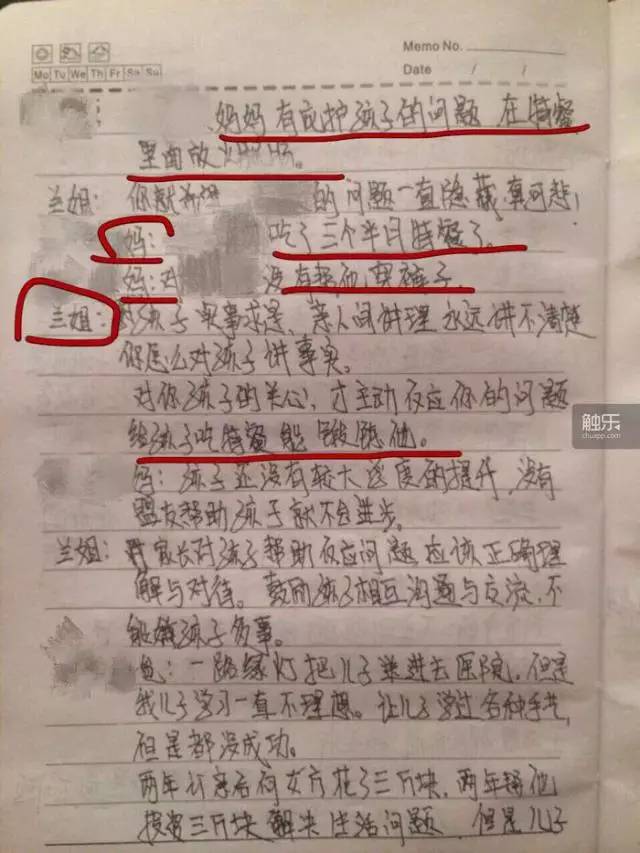 Memo No.
Mo Tu We Th Fr Sa Su Date / /
妈妈有应护孩子的问题 在特餐
里面放
兰姐: 你就 的问题一直隐藏,真可悲!
妈: 吃了三个半月特餐了。
妈:对 没有帮他 裤子.
兰姐: 对孩子实事求是、亲人间讲理永远讲不清楚
你怎么对孩子讲事实。
对你孩子的关心,才主动反应你的问题
给孩子吃特餐能 他。
妈: 孩子还没有较大 度的提升,没有
盟友帮助孩子就不会进步。
兰姐: 对家长对孩子帮助反应问题 应该正确理
解与对待。鼓励孩子相互沟通与交流,不
能 孩子多事。
爸: 一路绿灯把儿子送进去医院,但是
我儿子学习一直不理想。让儿子学过各种手艺,
但是都没成功。
两年 女方花了三万块,两年 他
投资三万块解决生活问题,但是儿子
触乐
chuapp.com